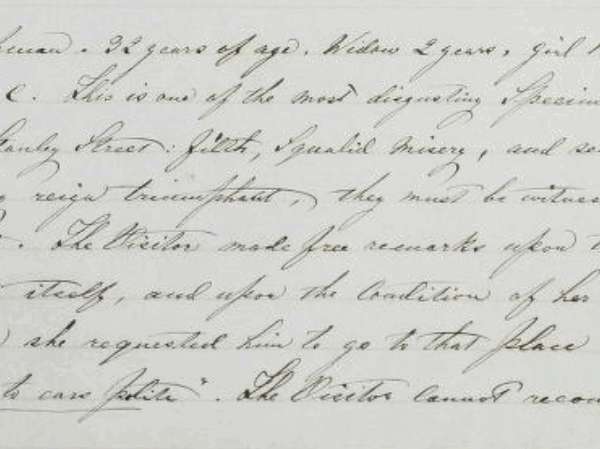 32 years of age. Widow 2 years, girl
C. This is one of the most disgusting Specim
Stanley Street: filth, Squalid Misery, and se
reign triumphant, they must be witnes
The Visitor made free remarks upon t
itself, and upon the Condition of her
she requested him to go to that place
to ears polite". The Visitor Cannot recom